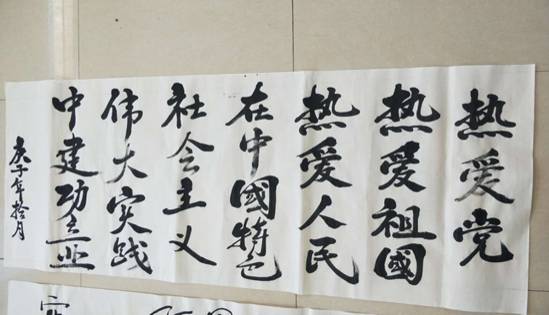 热爱党
热爱祖國
热爱人民
在中國特色
社会主义
伟大实践
中建功立业
庚子年拾月